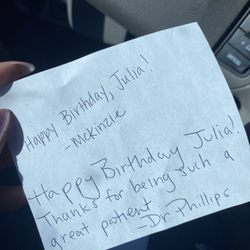 Happy Birthday, Julia!
-Mckinzie
Happy Birthday Julia!
Thanks for being such a
great patient
-Dr. Phillips